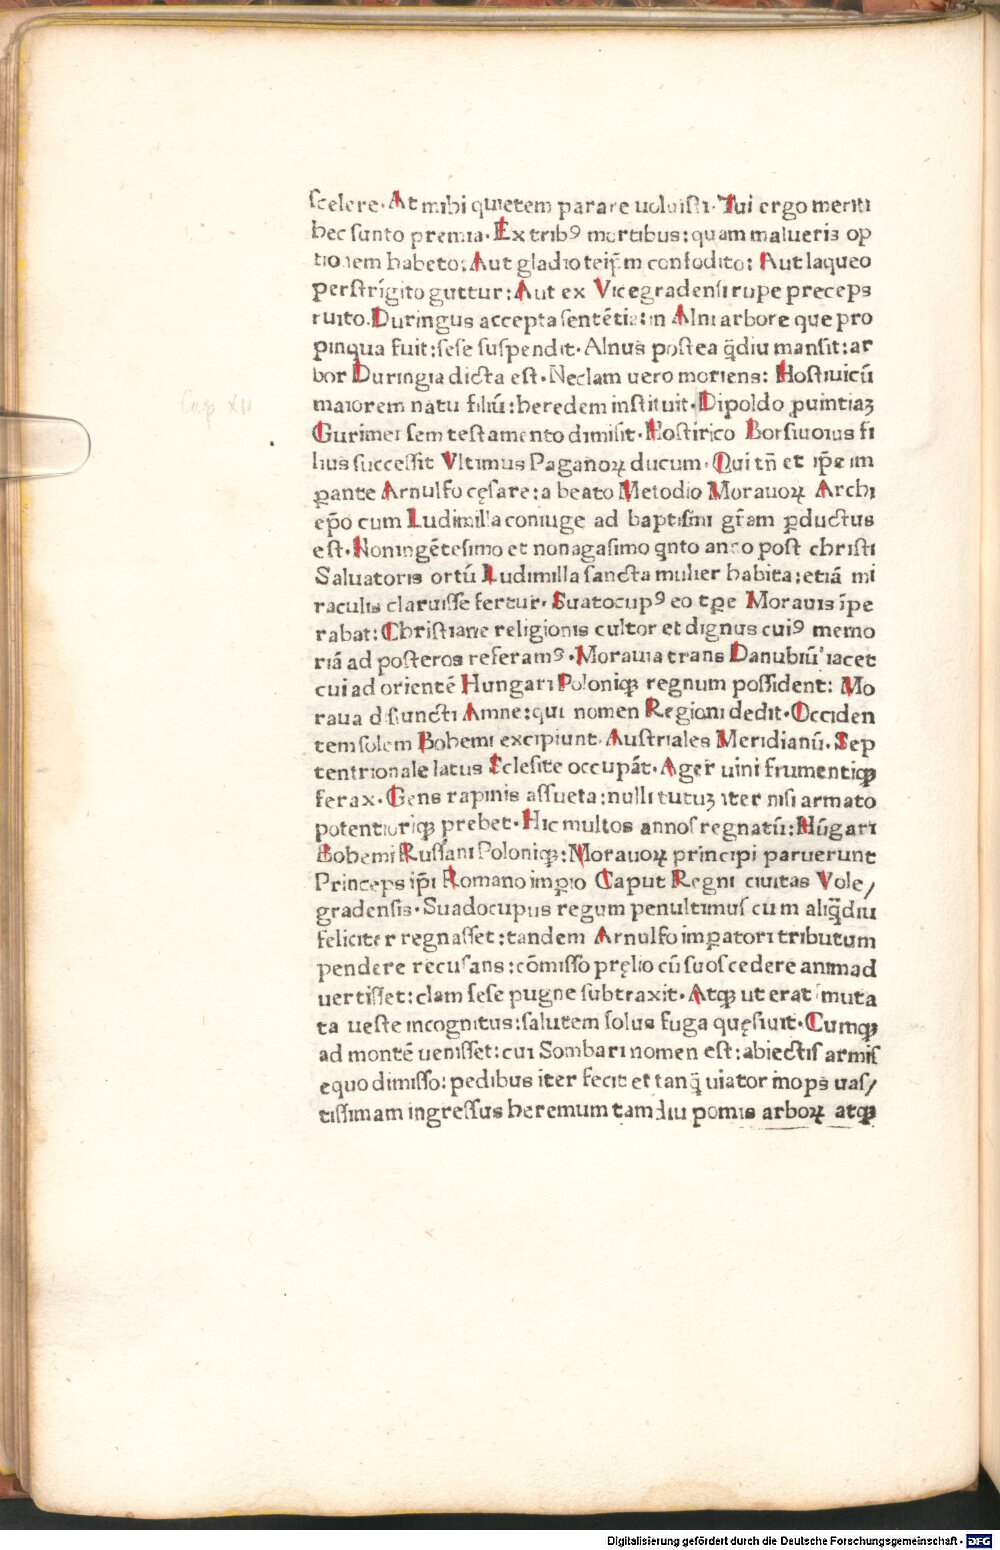 scelere. At mihi quietem parare uoluisti. Tui ergo meriti
hec sunto premia. Ex tribꝰ mortibus: quam malueris op
tionem habeto: Aut gladio teip̄m confodito: Aut laqueo
perstrīgito guttur: Aut ex Vicegradensi rupe preceps
ruito. Duringus accepta sentētia: in Alni arbore que pro
pinqua fuit: sese suspendit. Alnus postea q̄diu mansit: ar
bor Duringia dicta est. Neclam uero moriens: Hostiuicū
maiorem natu filiū: heredem instituit. Dipoldo ꝓuintiaꝫ
Gurimensem testamento dimisit. Hostirico Borsiuoius fi
lius successit Vltimus Paganoꝝ ducum. Qui tn̄ et ip̄e im
ꝑante Arnulfo cęsare: a beato Metodio Morauoꝝ Archi
ep̄o cum Ludimilla coniuge ad baptismi gr̄am ꝑductus
est. Noningētesimo et nonagasimo qnto anno post christi
Saluatoris ortū Ludimilla sancta mulier habita: etiā mi
raculis claruisse fertur. Suatocupꝰ eo tꝑe Morauis īpe
rabat: Christiane religionis cultor et dignus cuiꝰ memo
riā ad posteros referamꝰ. Morauia trans Danubiū iacet
cui ad orientē Hungari Poloniqꝫ regnum possident: Mo
raua distincti Amne: qui nomen Regioni dedit. Occiden
tem solem Bohemi excipiunt. Australes Meridianū. Sep
tentrionale latus Sclesite occupāt. Ager uini frumentiqꝫ
ferax. Gens rapinis assueta: nulli tutuꝫ iter nisi armato
potentioriqꝫ prebet. Hic multos annos regnatū: Hūgari
Bohemi Russani Poloniqꝫ: Morauoꝝ principi paruerunt
Princeps ip̄i Romano imꝑio Caput Regni ciuitas Vole/
gradensis. Suadocupus regum penultimus cum aliq̄diu
feliciter regnasset: tandem Arnulfo imꝑatori tributum
pendere recusans: cōmisso pręlio cū suos cedere animad
uertisset: clam sese pugne subtraxit. Atqꝫ ut erat muta
ta ueste incognitus: salutem solus fuga quęsiuit. Cumqꝫ
ad montē uenisset: cui Sombari nomen est: abiectis armis
equo dimisso: pedibus iter fecit et tanq̄ uiator inops uas/
tissimam ingressus heremum tamdiu pomis arboꝝ atqꝫ
Cap XII
Digitalisierung gefördert durch die Deutsche Forschungsgemeinschaft - DFG